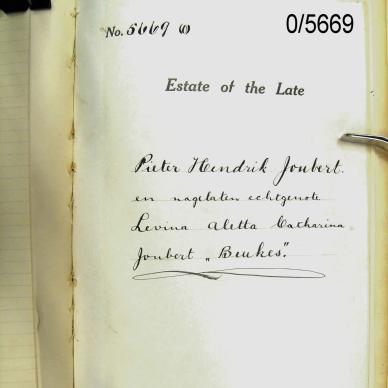 No. 5669 0/5669
Estate of the Late
Pieter Hendrik Joubert.
en nagelaten echtgenote
Levina Aletta Catharina
Joubert „Beukes".